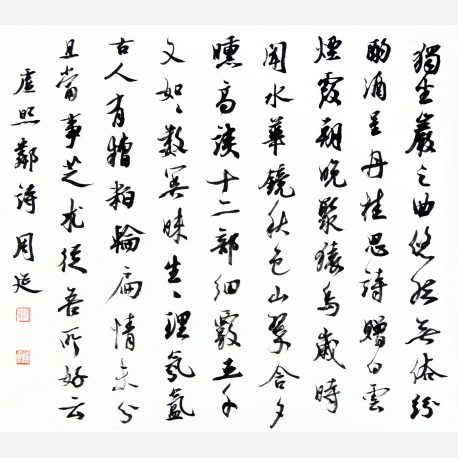 獨坐巖之曲悠然無俗紛
酌酒呈丹桂思詩贈白雲
煙霞朝晚聚猿鳥歲時
聞水華鏡秋色山翠含夕
曛高談十二部細覈五千
文如々數冥昧生々理氛氳
古人有糟粕輪扁情未分
且當事芝朮從吾所好云
盧照鄰詩 周延